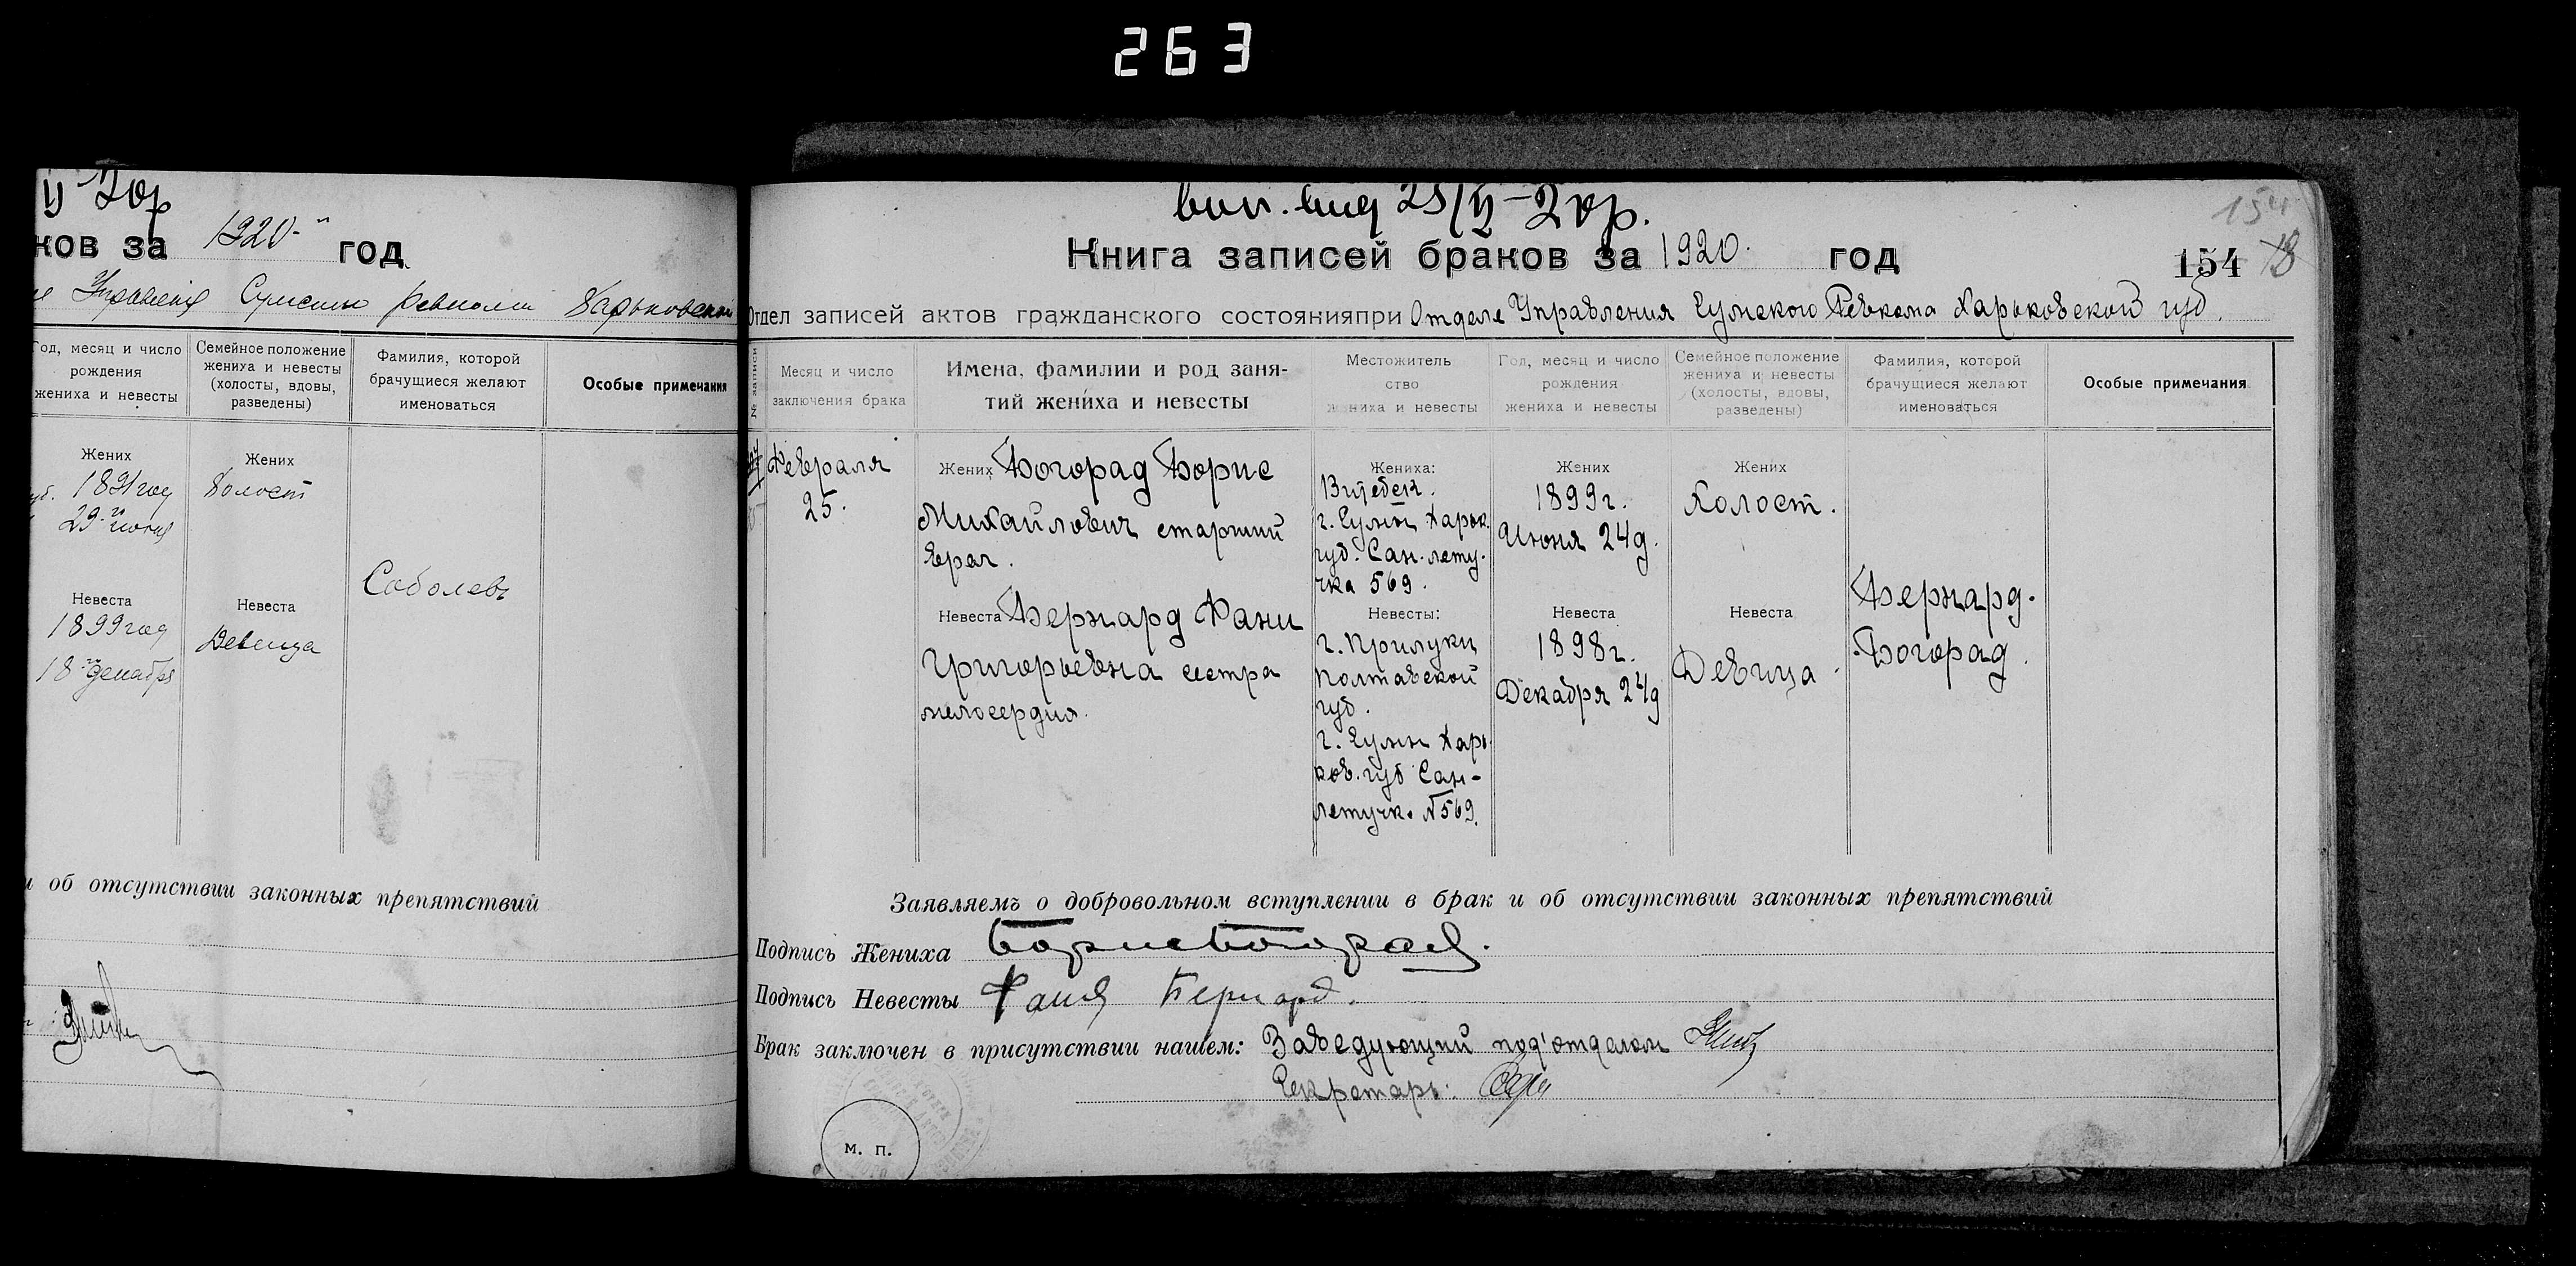 263
20р
ков за 1920 год
Управления Сумского Ревкома Харьковской
Год, месяц и число рождения жениха и невесты
Семейное положение жениха и невесты (холосты, вдовы, разведены)
Фамилия, которой брачущиеся желают именоваться
Особые примечания
Жених
1891 год
29 июня
Жених
Холост
Соболевъ
Невеста
1899 год
18 декабря
Невеста
Девица
об отсутствии законных препятствий
25/II-20р.
Книга записей браков за 1920 год
154
154 78
Отдел записей актов гражданского состояния при Отделе Управления Сумского Ревкома Харьковской губ.
№ записи
Месяц и число заключения брака
Имена, фамилии и род занятий жениха и невесты
Местожительство жениха и невесты
Год, месяц и число рождения жениха и невесты
Семейное положение жениха и невесты (холосты, вдовы, разведены)
Фамилия, которой брачущиеся желают именоваться
Особые примечания
Февраля
25.
Жених Богорад Борис
Михайлович старший
врач.
Жениха:
Витебск.
г. Сумы Харьк.
губ. Сан-лету-
чка 569.
Жених
1899г.
Июня 24д.
Жених
Холост.
Невеста Бернард Фани
Григорьевна сестра
милосердия.
Невесты:
г. Прилуки
Полтавской
губ.
г. Сумы Харь
ков. губ Сан-
летучк. №569.
Невеста
1898г.
Декабря 24д
Невеста
Девица.
Бернард-
-Богорад.
Заявляемъ о добровольном вступлении в брак и об отсутствии законных препятствий
Подпись Жениха Борис Богорад.
Подпись Невесты Фаня Бернард.
Брак заключен в присутствии нашем: Заведующий под'отделом
Секретарь:
М. П.